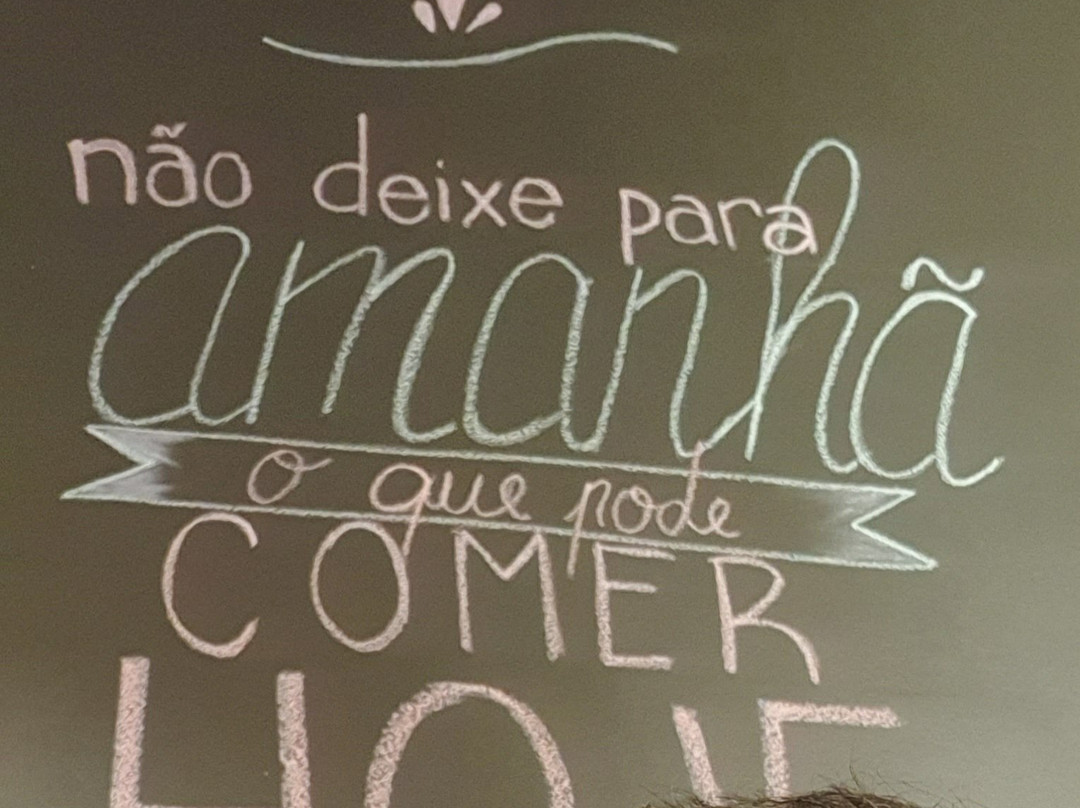 não deixe para
amanhã
o que pode
COMER
HOJE